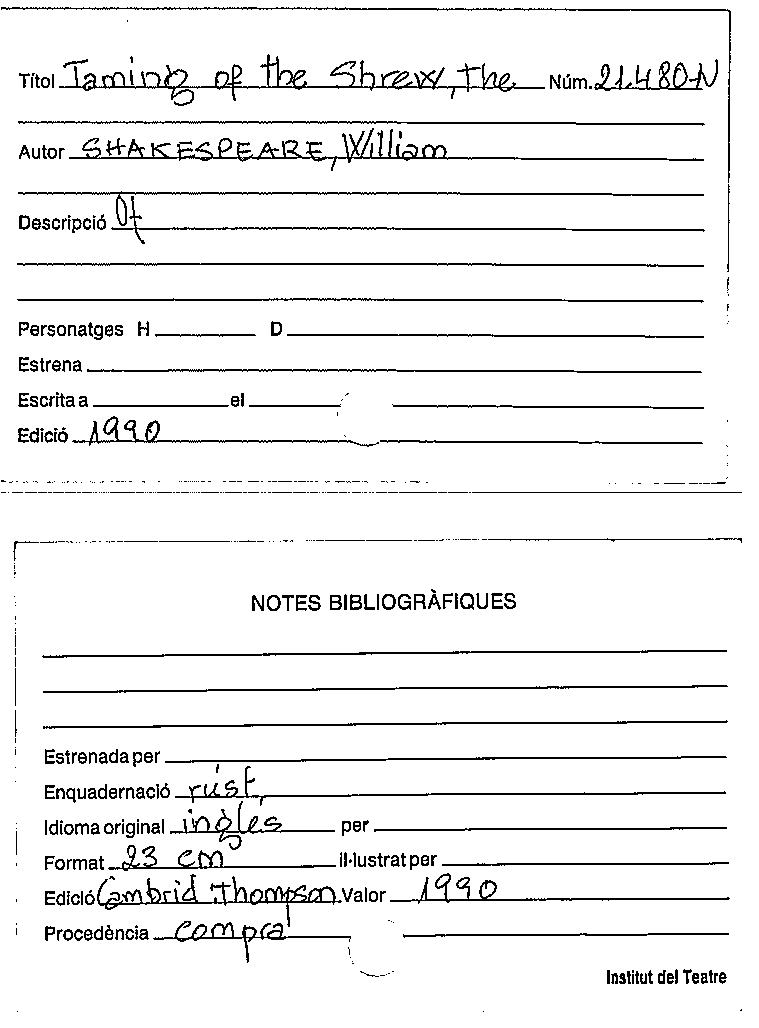 Títol Taming of the Shrew, the Núm. 21.480-N
Autor SHAKESPEARE, William
Descripció Ot
Personatges H D
Estrena
Escrita a el
Edició 1990
NOTES BIBLIOGRÀFIQUES
Estrenada per
Enquadernació rúst,
Idioma original inglés per
Format 23 cm il·lustrat per
Edició Cambrid : Thompson Valor 1990
Procedència compra
Institut del Teatre